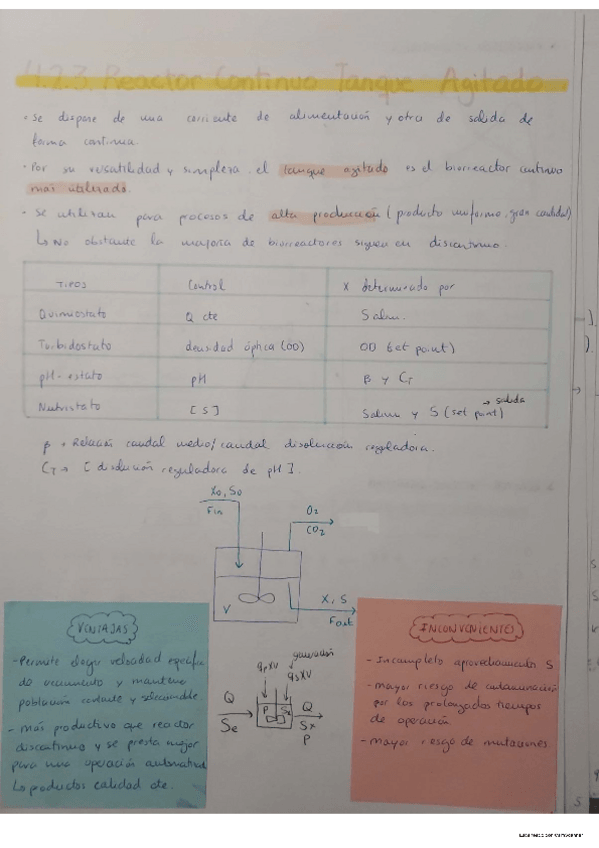 4.2.3. Reactor Continuo Tanque Agitado
• Se dispone de una corriente de alimentación y otra de salida de
forma continua.
• Por su versatilidad y simpleza, el tanque agitado es el biorreactor continuo
más utilizado.
• Se utilizan para procesos de alta producción (producto uniforme, gran cantidad)
↳ No obstante la mayoría de biorreactores siguen en discontinuo.
TIPOS Control X determinado por
Quimiostato Q cte Salim.
Turbidostato densidad óptica (OD) OD (set point)
pH-estato pH β y CT
Nutristato [S] Salim y S (set point) → salida
β → Relación caudal medio/caudal disolución reguladora.
CT → [disolución reguladora de pH].
X0, S0
Fin
O2
CO2
V
X, S
Fout
VENTAJAS
- Permite elegir velocidad específica
de crecimiento y mantener
población constante y
- más productivo que reactor
discontinuo y se presta mejor
para una operación
↳ productos calidad cte.
generación
qpXV
qsXV
Q
Se
P
S
Q
Sx
P
INCONVENIENTES
- Incompleto aprovechamiento S
- mayor riesgo de contaminación
por los prolongados tiempos
de operación
- mayor riesgo de mutaciones